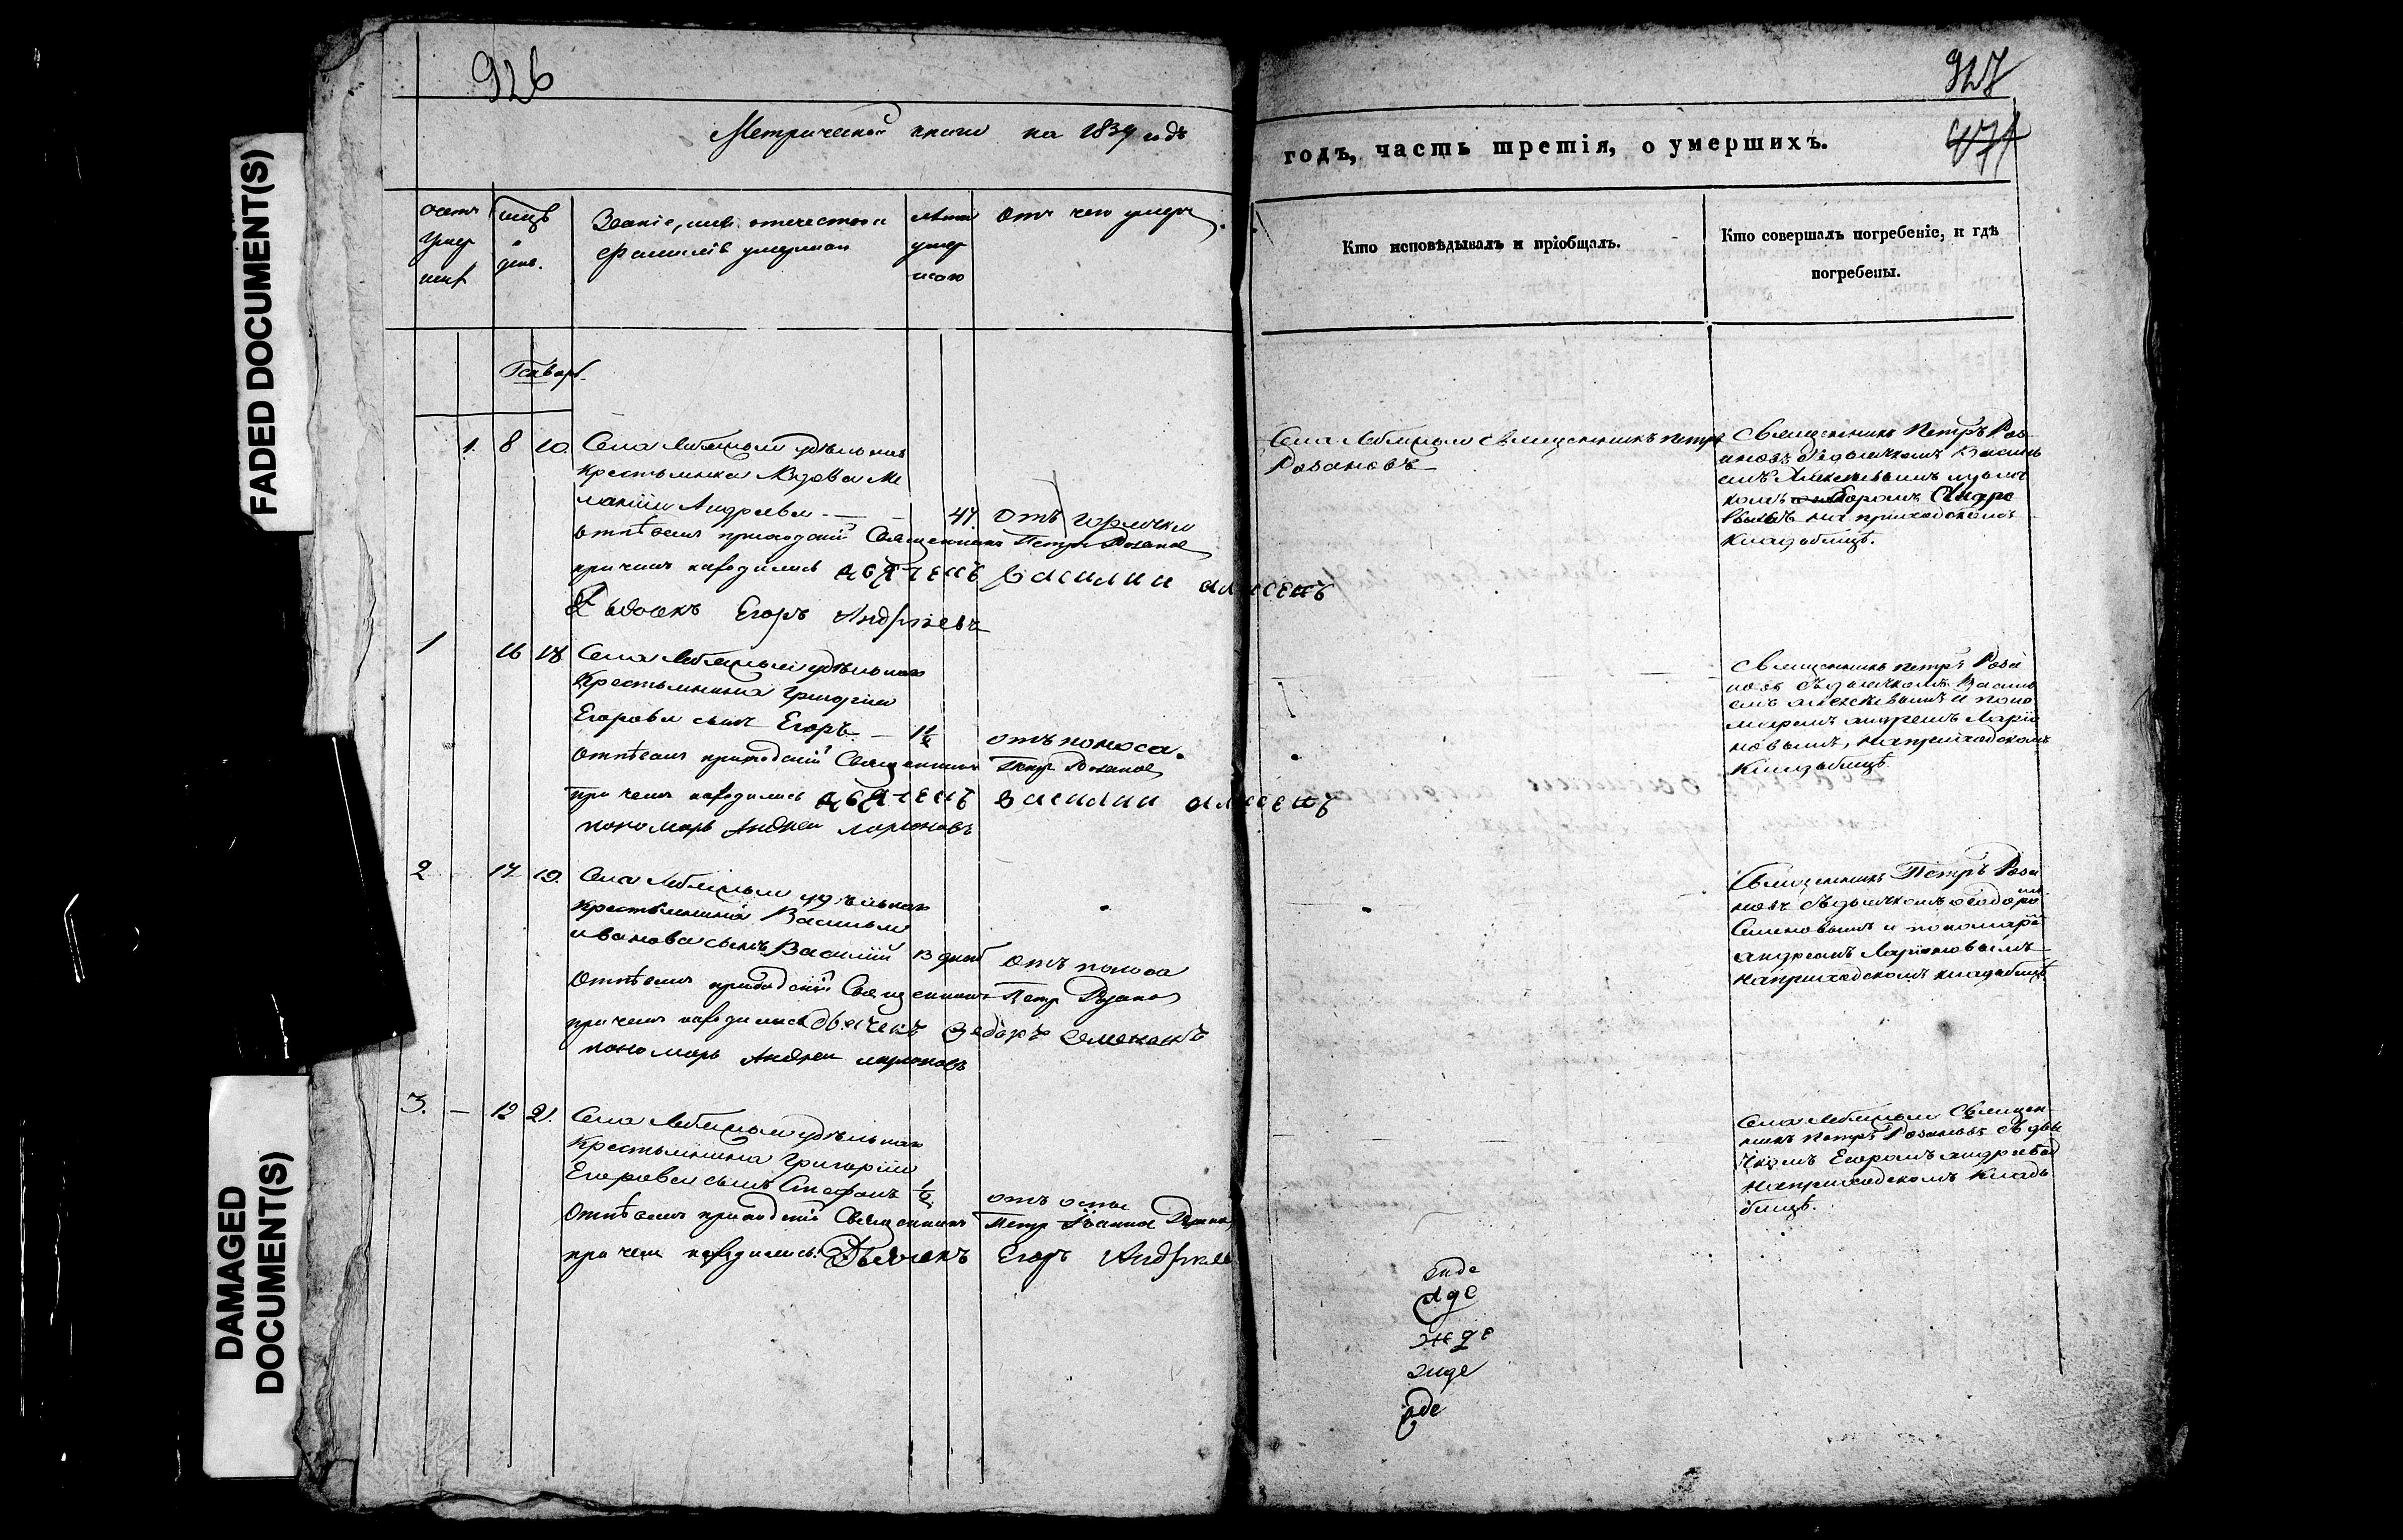 926
Метрической книги на 1839 годъ
счетъ умер шихъ
мцъ и день.
Званіе, имя, отечество и
фамилія умершаго
лѣта умер шаго
Отъ чего умеръ
Генварь
1. 8 10. Села удѣльная
крестьянка Вдова Ме
ланія Андреева — 47. отъ горячки
отпѣвалъ приходскій Священникъ Петръ Розановъ
при чемъ находились дьячекъ Василии алексеевъ
дьячекъ Егоръ Андреевъ
1 16 18 Села удѣльнаго
Крестьянина Григорія
Егорова сынъ Егоръ — 1 1/2 отъ поноса.
Отпѣвалъ приходскій Священникъ Петръ Розановъ
при чемъ находились дьячекъ Василии алексеевъ
пономарь Андреи ларионовъ
2 17 19. Села удѣльнаго
крестьянина Василья
иванова сынъ Василій 13 дней отъ поноса
Отпѣвалъ приходскій Священникъ Петръ Розановъ
при чемъ находились дьячекъ Федоръ Семеновъ
пономарь Андреи ларионовъ
3. — 19 21. Села удѣльнаго
Крестьянина Григорія
Егорова сынъ Стефанъ 1/2 отъ оспы
Отпѣвалъ приходскій Священникъ Петръ Розановъ
при чемъ находились: Дьячекъ Егоръ Андреевъ
927
471
годъ, часть третія, о умершихъ.
Кто исповѣдывалъ и пріобщалъ.
Кто совершалъ погребеніе, и гдѣ
погребены.
Села Священникъ Петръ
Розановъ
Священникъ Петръ Роз
ановъ съ дьячкомъ Василь
емъ Алексѣевымъ и дьяч
комъ Егоромъ Андре
евымъ на приходскомъ
кладбищѣ.
Священникъ Петръ Роза
новъ съ дьячкомъ Василь
емъ алексѣевымъ и поно
маремъ андреемъ Ларіо
новымъ, на приходскомъ
Кладбищѣ
Священникъ Петръ Роза
новъ съ дьячкомъ Ѳеодоромъ
Семеновымъ и пономаремъ
андреемъ Ларіоновымъ
на приходскомъ кладбищѣ
Села Священ-
никъ Петръ Розановъ съ дья
чкомъ Егоромъ андреевымъ
на приходскомъ Кладъ
бищѣ.
FADED DOCUMENT(S)
DAMAGED
DOCUMENT(S)